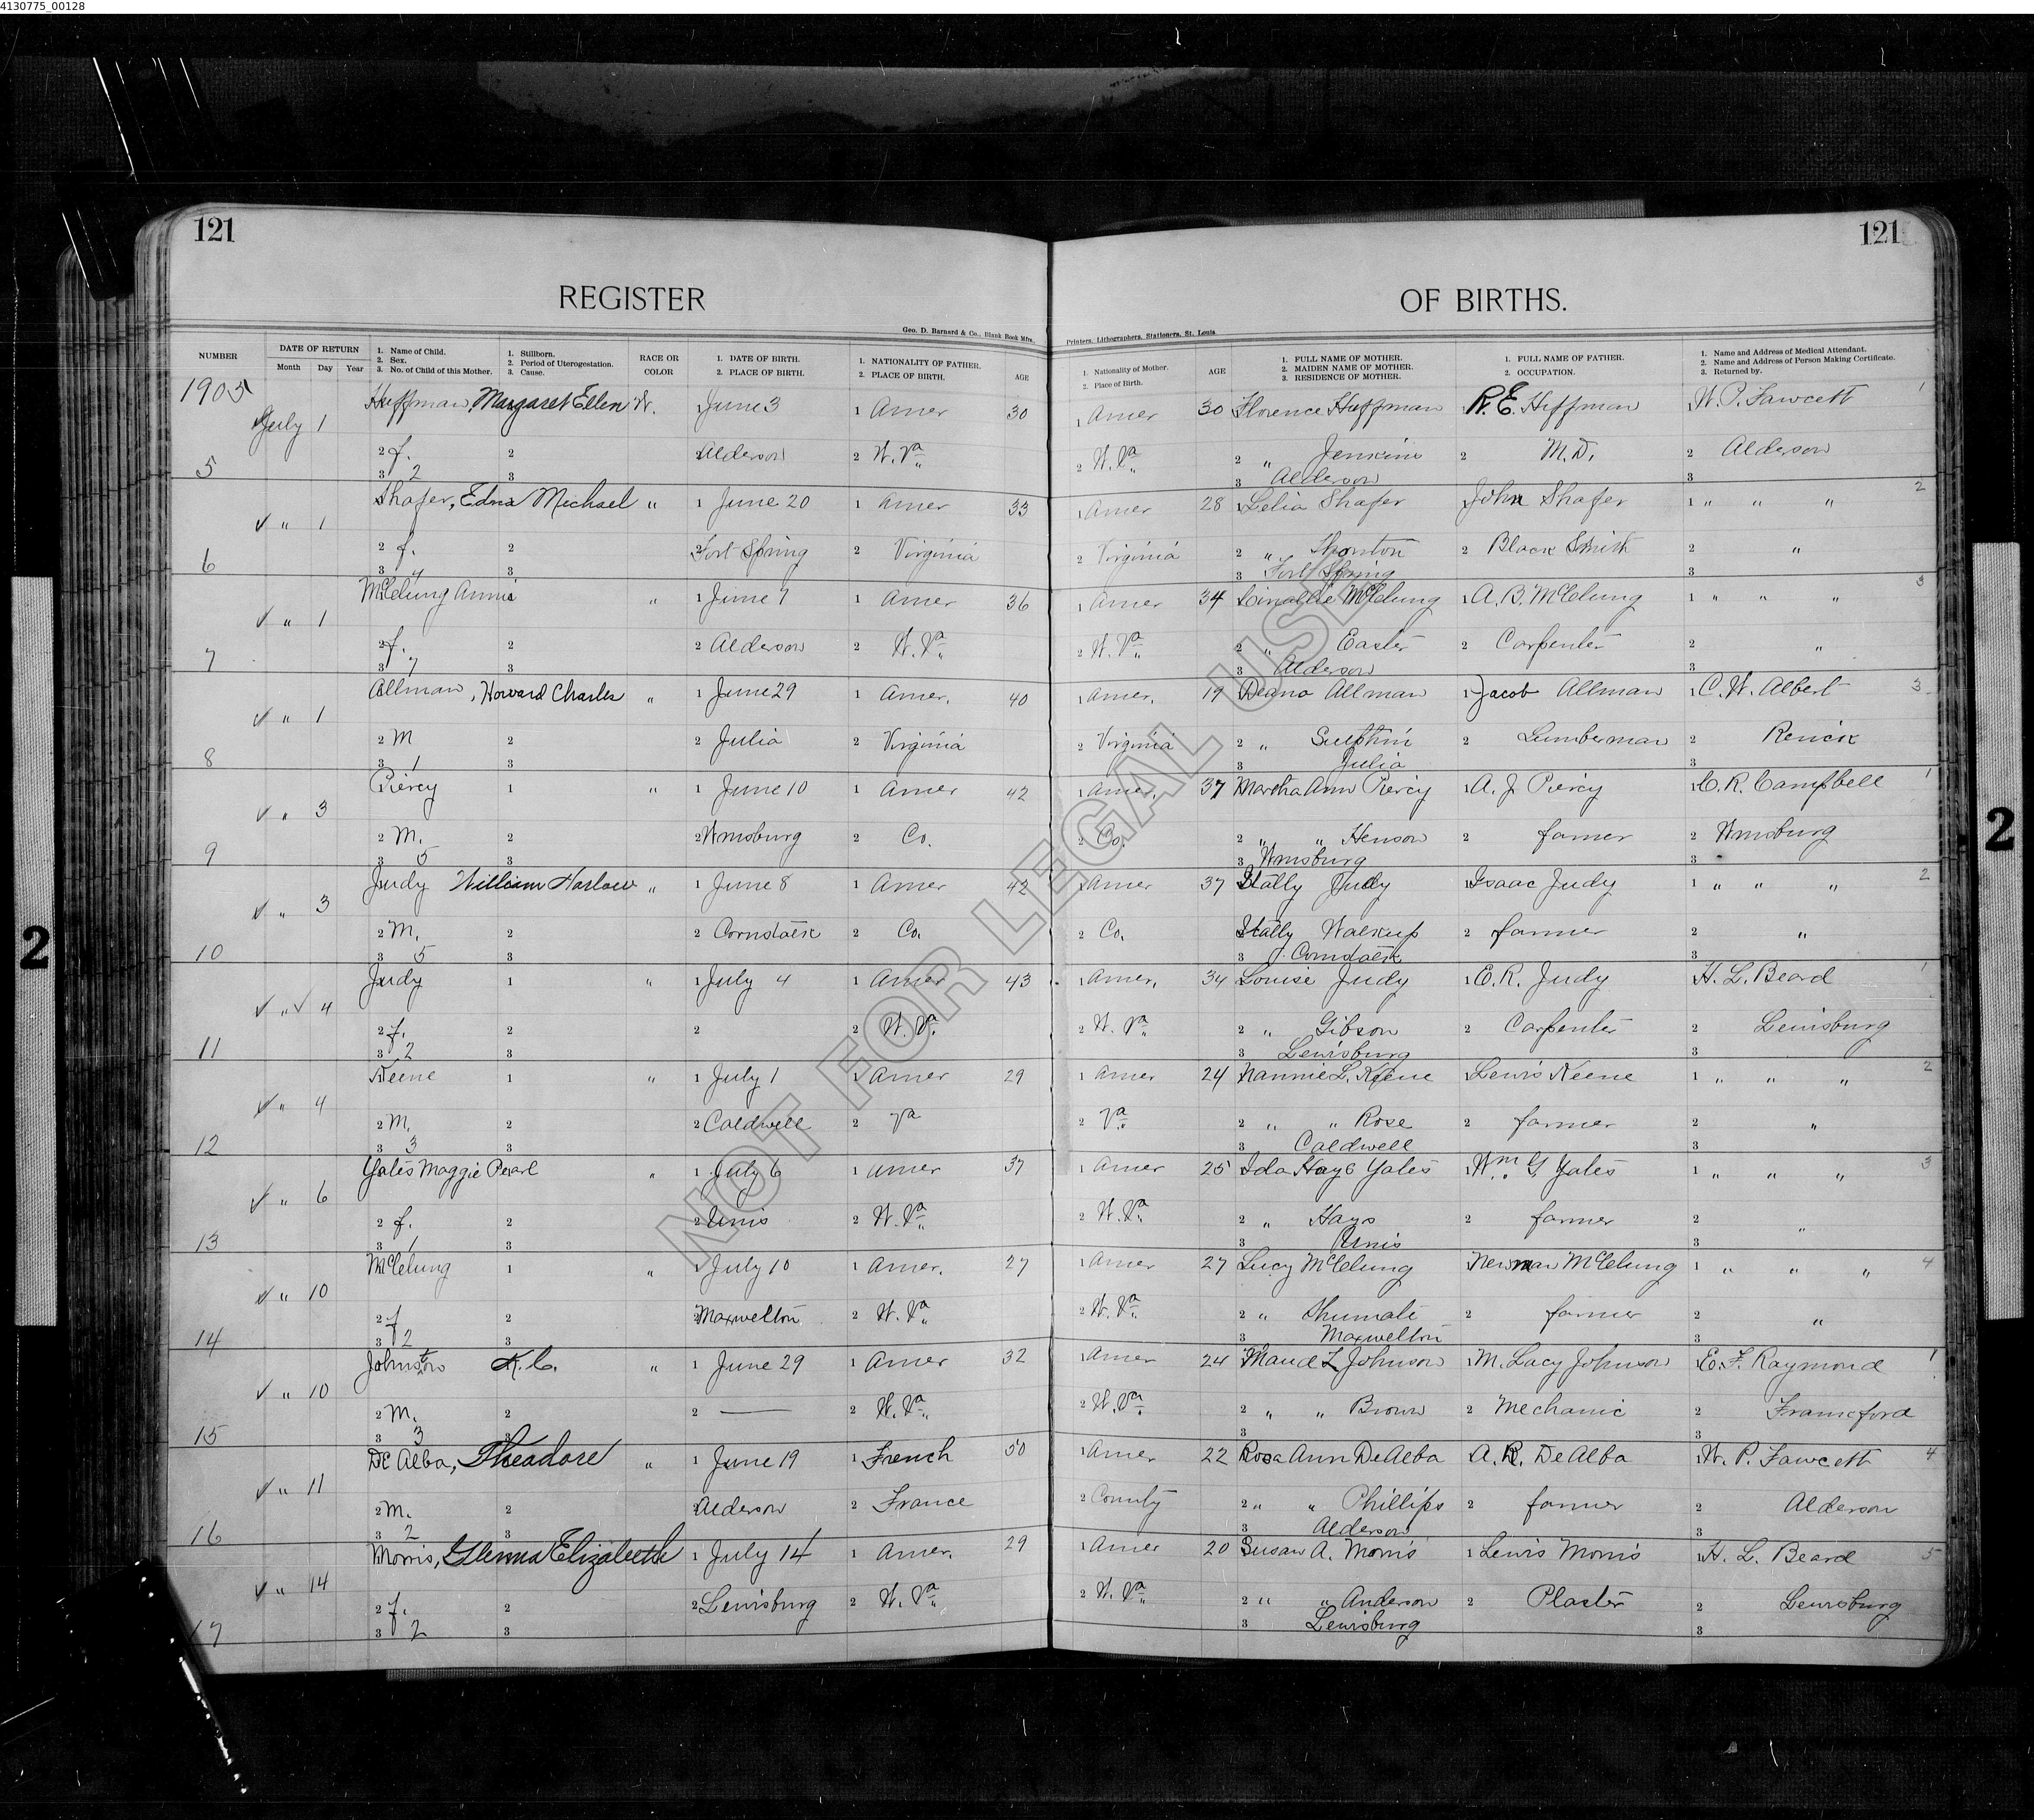 4130775_00128
121
121
REGISTER
OF BIRTHS.
Geo. D. Barnard & Co., Blank Book Mfrs.,
Printers, Lithographers, Stationers, St. Louis.
NUMBER
DATE OF RETURN
Month Day Year
1. Name of Child.
2. Sex.
3. No. of Child of this Mother.
1. Stillborn.
2. Period of Uterogestation.
3. Cause.
RACE OR COLOR
1. DATE OF BIRTH.
2. PLACE OF BIRTH.
1. NATIONALITY OF FATHER.
2. PLACE OF BIRTH.
AGE
1. Nationality of Mother.
2. Place of Birth.
AGE
1. FULL NAME OF MOTHER.
2. MAIDEN NAME OF MOTHER.
3. RESIDENCE OF MOTHER.
1. FULL NAME OF FATHER.
2. OCCUPATION.
1. Name and Address of Medical Attendant.
2. Name and Address of Person Making Certificate.
3. Returned by.
1905
July 1 Huffman, Margaret Ellen W. 1 June 3 1 Amer 30 1 Amer 30 Florence Huffman R. E. Huffman W. P. Fawcett 1
2 f. 2 2 Alderson 2 W. Va 2 W. Va 2 " Jenkins 2 M.D. 2 Alderson
5 3 2 3 3 Alderson 3
✓ " 1 Shafer, Edna Michael " 1 June 20 1 Amer 33 1 Amer 28 1 Lelia Shafer John Shafer 1 " " " 2
2 f. 2 2 Fort Spring 2 Virginia 2 Virginia 2 " Thornton 2 Black Smith 2 "
6 3 4 3 3 Fort Spring 3
✓ " 1 McClung Annie " 1 June 7 1 Amer 36 1 Amer 34 McClung 1 A. B. McClung 1 " " " 3
2 f. 2 2 Alderson 2 W. Va 2 W. Va 2 " Easter 2 Carpenter 2 "
7 3 7 3 3 Alderson 3
✓ " 1 Allman, Howard Charles " 1 June 29 1 Amer. 40 1 Amer. 19 Deana Allman 1 Jacob Allman 1 C. W. Albert 3
2 M 2 2 Julia 2 Virginia 2 Virginia 2 " Sulphin 2 Lumberman 2 Renick
8 3 1 3 3 Julia 3
✓ " 3 Piercy 1 " 1 June 10 1 Amer 42 1 Amer. 37 Martha Ann Piercy 1 A. J. Piercy 1 C. R. Campbell 1
2 M. 2 2 Wmsburg 2 Co. 2 Co. 2 " " Henson 2 farmer 2 Wmsburg
9 3 5 3 3 Wmsburg 3
✓ " 3 Judy William Harlow " 1 June 8 1 Amer 42 1 Amer 37 Stally Judy 1 Isaac Judy 1 " " " 2
2 M. 2 2 Cornstalk 2 Co. 2 Co. Stally Walkup 2 farmer 2 "
10 3 5 3 3 Cornstalk 3
✓ " ✓ 4 Judy 1 " 1 July 4 1 Amer 43 1 Amer. 34 Louise Judy 1 E. R. Judy H. L. Beard 1
2 f. 2 2 2 W. Va. 2 W. Va 2 " Gibson 2 Carpenter 2 Lewisburg
11 3 2 3 3 Lewisburg 3
✓ " 4 Keene 1 " 1 July 1 1 Amer 29 1 Amer 24 Nannie L. Keene 1 Lewis Keene 1 " " " 2
2 M. 2 2 Caldwell 2 Va 2 Va 2 " " Rose 2 farmer 2 "
12 3 3 3 3 Caldwell 3
✓ " 6 Yates Maggie Pearl " 1 July 6 1 Amer 37 1 Amer 25 Ida Hays Yates 1 Wm. G. Yates 1 " " " 3
2 f. 2 2 Unis 2 W. Va 2 W. Va 2 " Hays 2 farmer 2 "
13 3 1 3 3 Unis 3
✓ " 10 McClung 1 " 1 July 10 1 Amer. 27 1 Amer 27 Lucy McClung Newman McClung 1 " " " 4
2 f 2 2 Maxwelton 2 W. Va 2 W. Va 2 " Shumate 2 farmer 2 "
14 3 2 3 3 Maxwelton 3
✓ " 10 Johnston K. C. " 1 June 29 1 Amer 32 1 Amer 24 Maud L Johnson 1 M. Lacy Johnson E. F. Raymond 1
2 M. 2 2 — 2 W. Va 2 W. Va 2 " " Brown 2 Mechanic 2 Frankford
15 3 3 3 3 3
✓ " 11 De Alba, Theadore " 1 June 19 1 French 50 1 Amer 22 Rosa Ann DeAlba A. R. DeAlba 1 W. P. Fawcett 4
2 M. 2 2 Alderson 2 France 2 County 2 " " Phillips 2 farmer 2 Alderson
16 3 2 3 3 Alderson 3
✓ " 14 Morris, Glenna Elizabeth 1 July 14 1 Amer. 29 1 Amer 20 Susan A. Morris 1 Lewis Morris 1 H. L. Beard 5
2 f. 2 2 Lewisburg 2 W. Va 2 W. Va 2 " " Anderson 2 Plaster 2 Lewisburg
17 3 2 3 3 Lewisburg 3
2
2
NOT FOR LEGAL USE